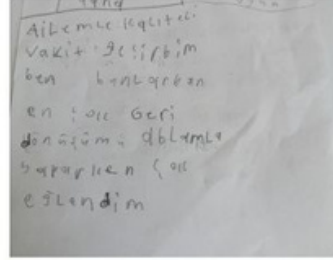 Ailemle kaliteli
vakit geçirbim
ben bunlarban
en çok Geri
dönüşümü ablamla
yaparken çok
eğlendim